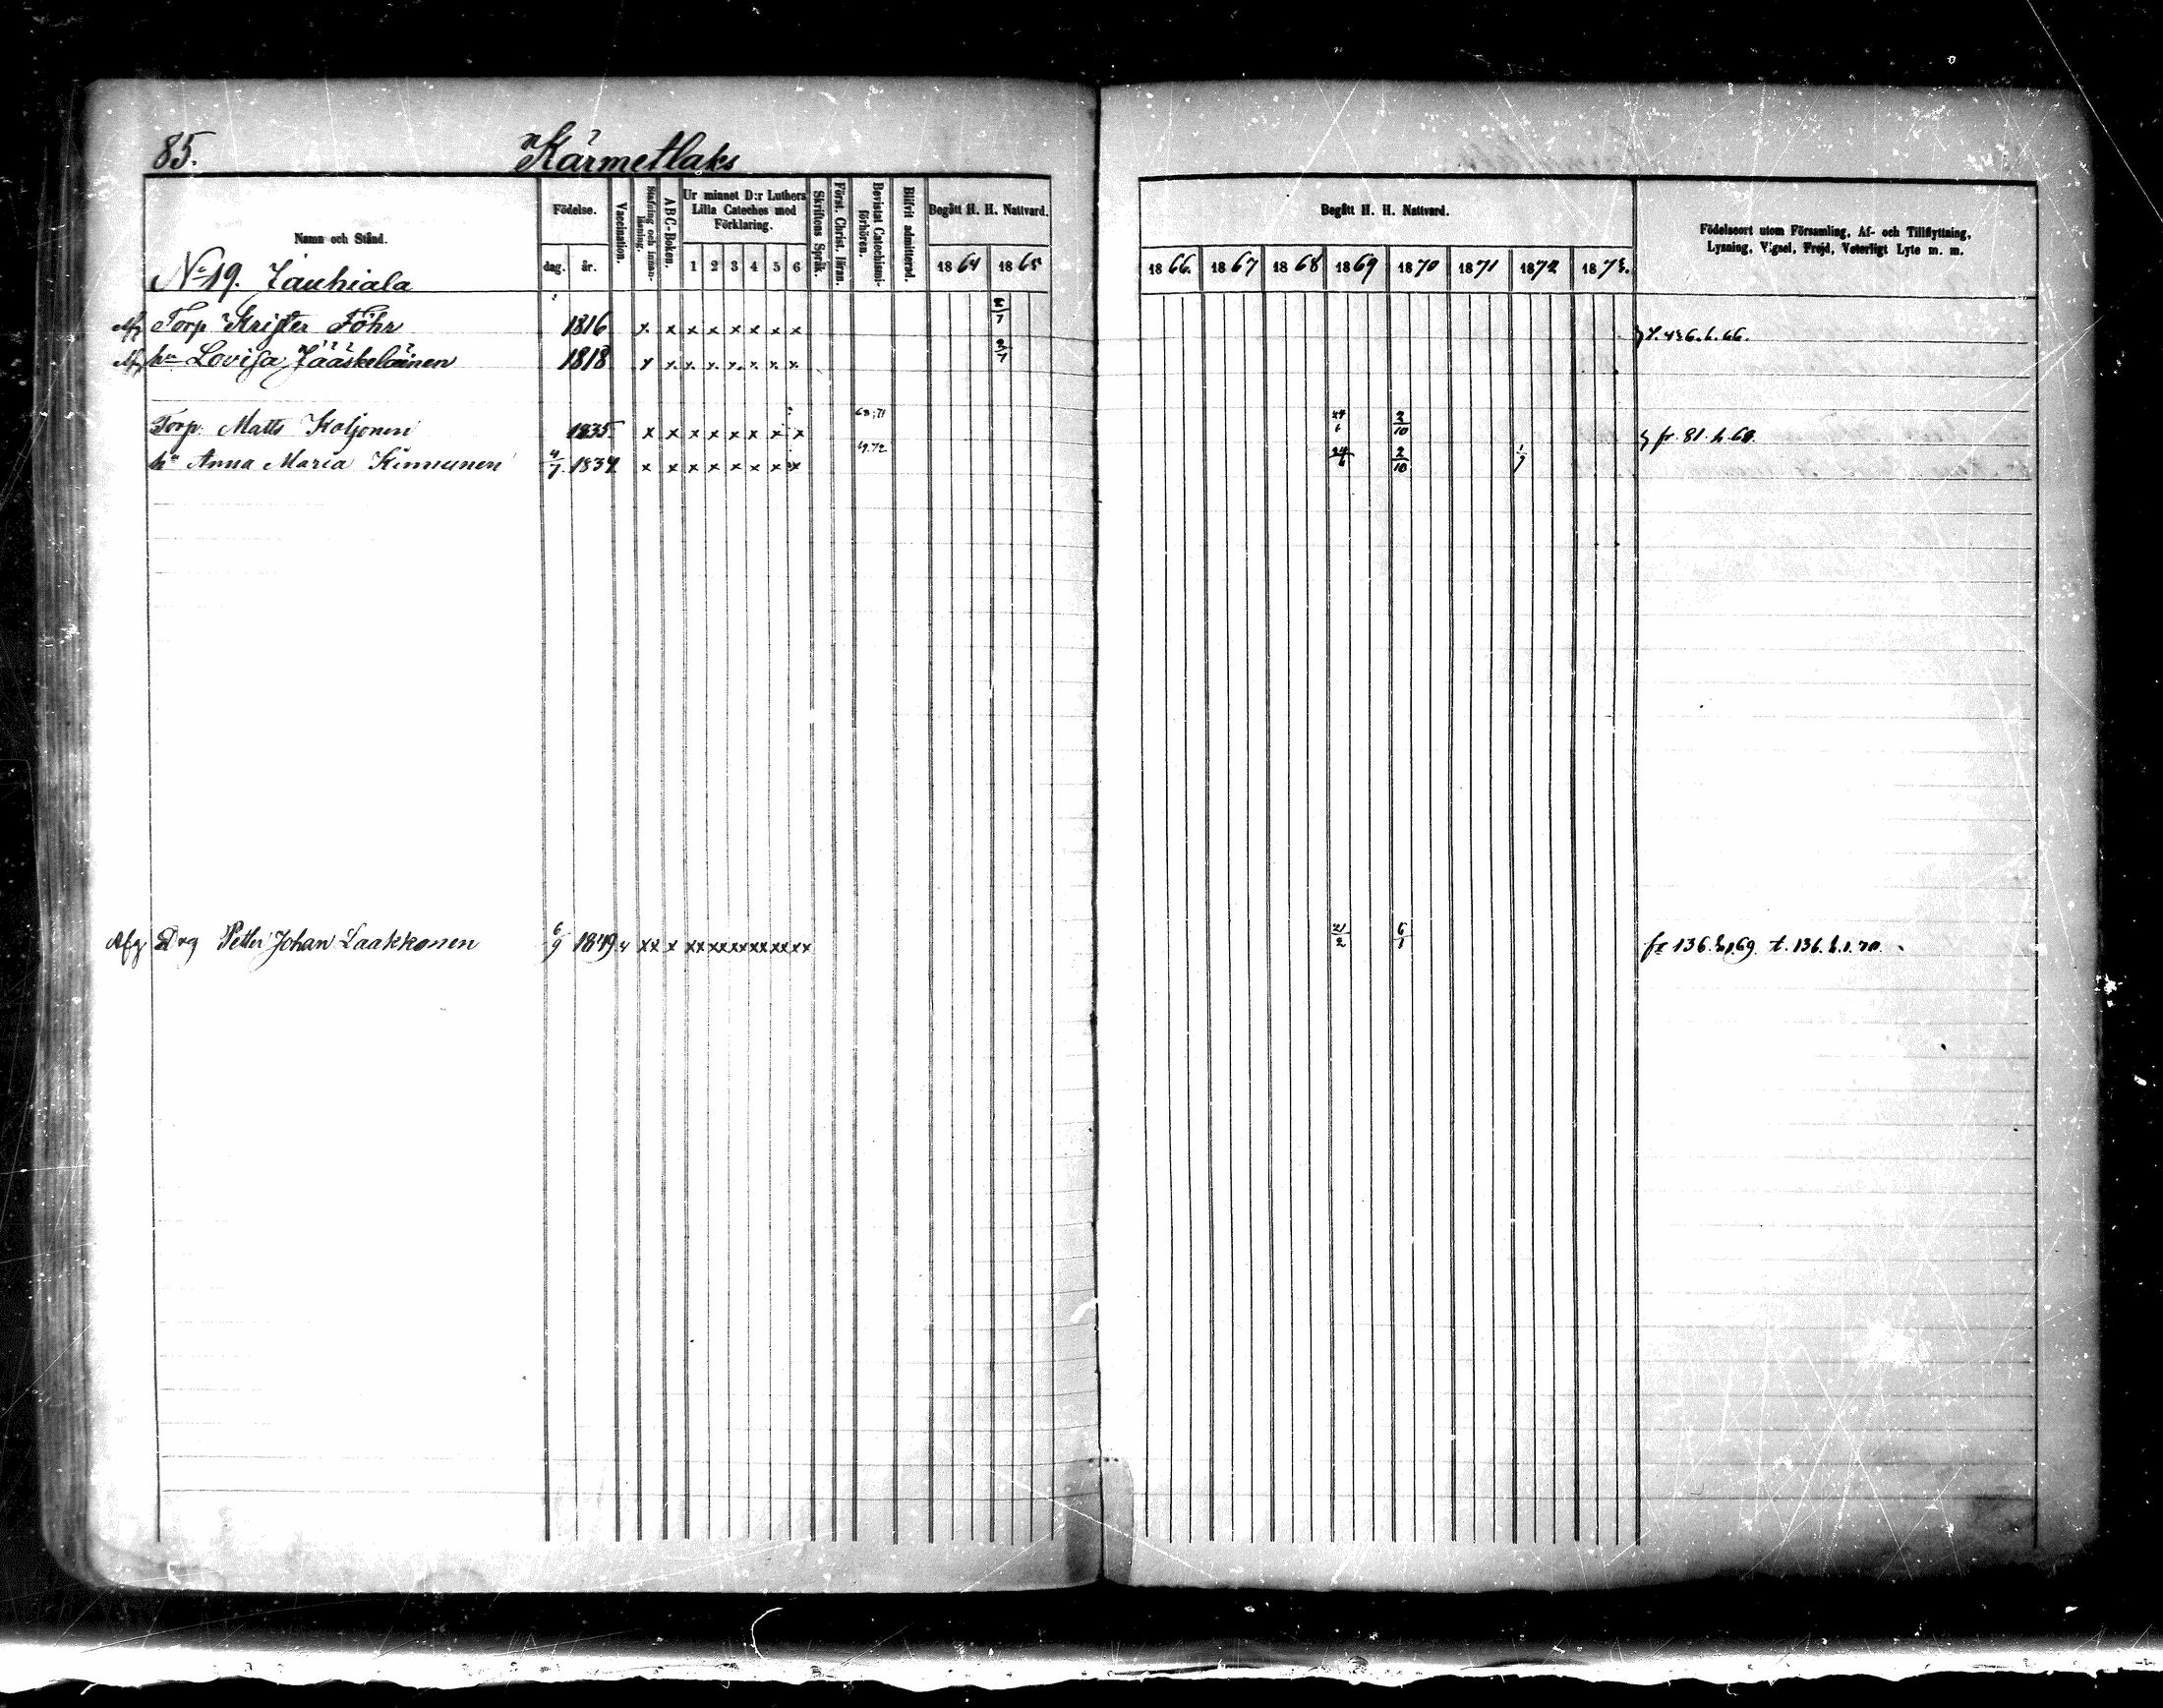 85.
Kärmetlaks
Namn och Stånd.
Födelse.
dag. år.
Vaccination.
Stafning och innanläsning.
ABC-Boken.
Ur minnet D:r Luthers Lilla Cateches med Förklaring.
1 2 3 4 5 6
Skriftens Språk.
Först. Christ. läran.
Bevistat Catechismiförhören.
Blifvit admitterad.
Begått H. H. Nattvard.
1864 1865
Begått H. H. Nattvard.
1866. 1867 1868 1869 1870 1871 1872 1873.
Födelseort utom Församling, Af- och Tillflyttning,
Lysning, Vigsel, Frejd, Veterligt Lyte m. m.
No 19. Jauhiala
Afg Torp Krister Föhr 1816 x x x x x x x x 2/7
Afg hu Lovisa Jääskeläinen 1818 x x x x x x x x 2/7
Torp. Matts Koljonen 1835 x x x x x x x x 68,71 24/6 2/10 fr. 81. h. 68.
hu Anna Maria Kinnunen 4/7 1834 x x x x x x x x 69.72 24/6 2/10 1/7
Afg Drg Petter Johan Laakkonen 6/9 1849 v xx x xx xx xx xx xx xx 21/2 6/1 fr 136. h.1.69. t. 136. h. 1. 70.